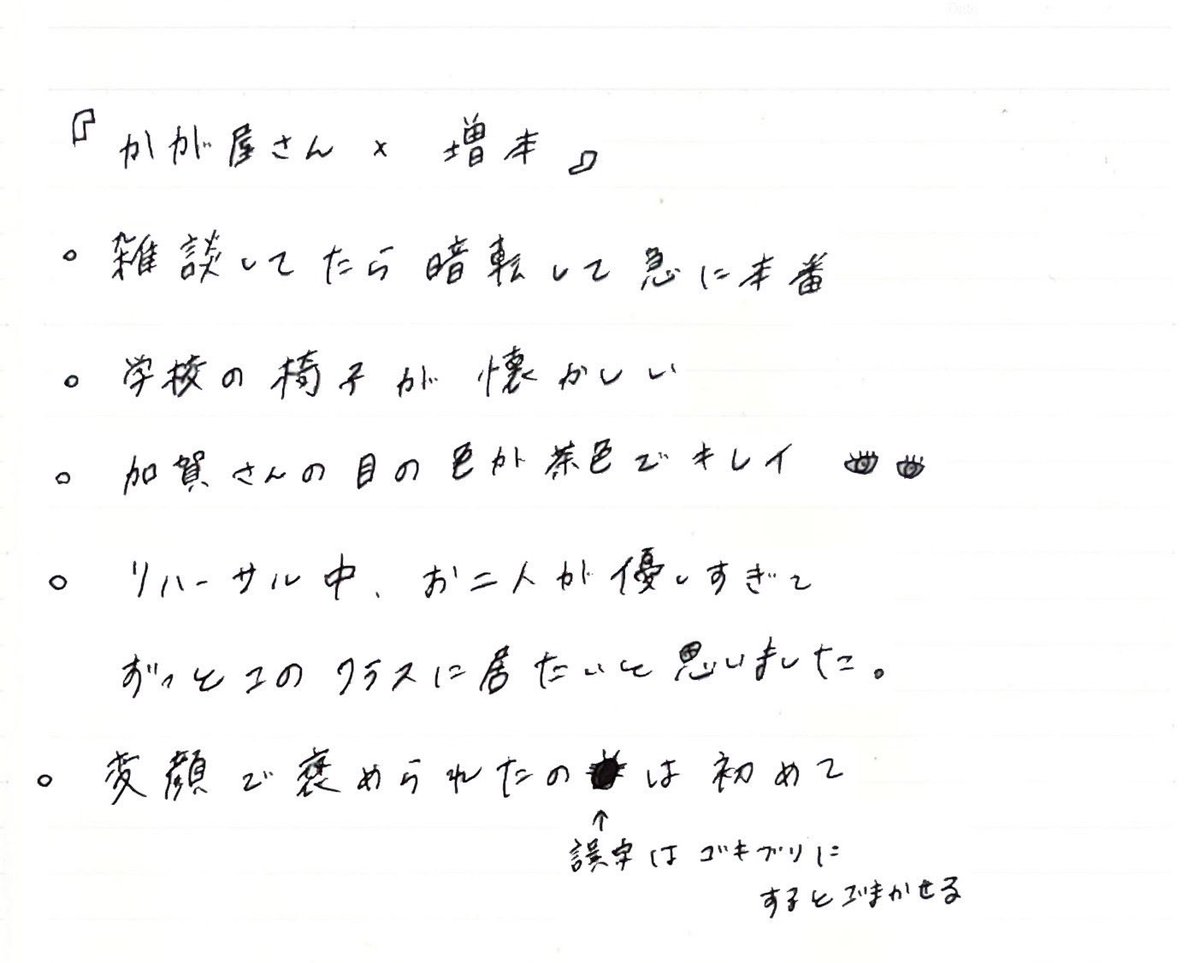 『かが屋さん × 増本』
。雑談してたら暗転して急に本番
。学校の椅子が懐かしい
。加賀さんの目の色が茶色でキレイ
。リハーサル中、お二人が優しすぎて
ずっとこのクラスに居たいと思いました。
。変顔で褒められたのは初めて
↑
誤字はゴキブリに
するとごまかせる